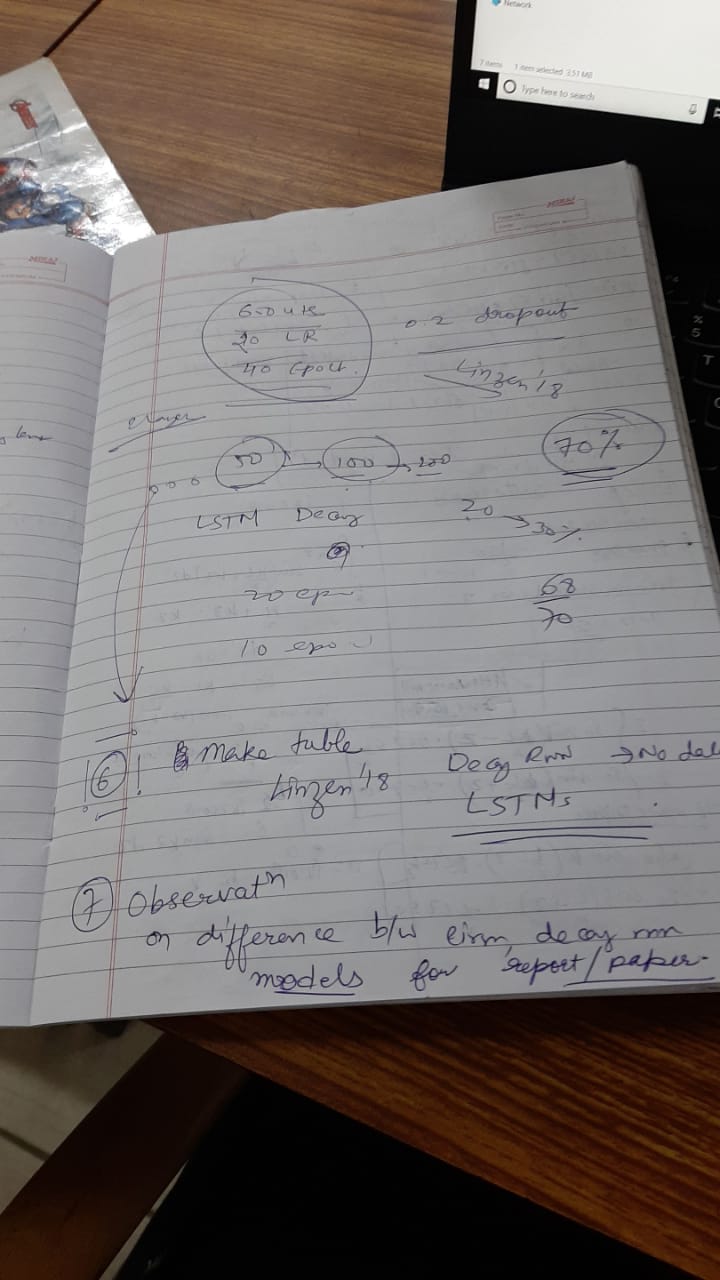 Network
7 items 1 item selected 3.57 MB
Type here to search
650 uts
20 LR
40 epoch.
0.2 dropout
Linzen '18
50 → 100 → 200
70%
LSTM Decay
20 → 30%
20 ep
68
70
10 epo
6 Make table
Linzen '18
Decay RNN → No
LSTMs
7 Observatn
on difference b/w eirnn, decay rnn
models for report/paper.